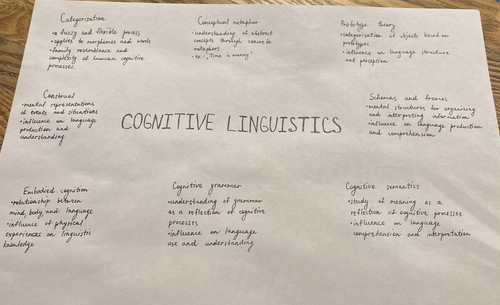 Categorisation
• a fuzzy and flexible process
• applies to morphemes and words
• family resemblance and
complexity of human cognitive
processes.
Conceptual metaphor
• understanding of abstract
concepts through concrete
metaphors
• ex: "Time is money"
Prototype theory
• categorisation of objects based on
prototypes
• influence on language structure
and perception
Construal
• mental representations
of events and situations
• influence on language
production and
understanding
COGNITIVE LINGUISTICS
Schemas and frames
• mental structures for organising
and interpreting information
• influence on language production
and comprehension
Embodied cognition
• relationship between
mind, body and language
• influence of physical
experiences on linguistic
knowledge
Cognitive grammar
• understanding of grammar
as a reflection of cognitive
processes
• influence on language
use and understanding
Cognitive semantics
• study of meaning as a
reflection of cognitive processes
• influence on language
comprehension and interpretation